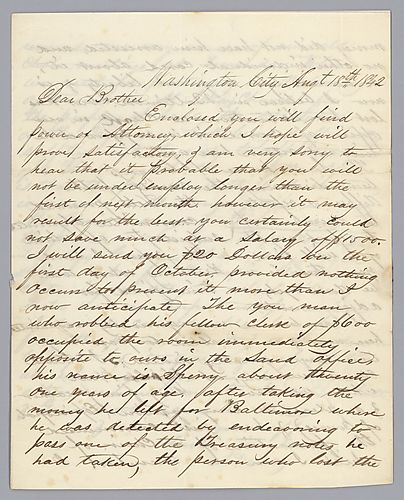 Washington City Augt 18th 1842
Dear Brother
Enclosed you will find
power of Attorney, which I hope will
prove satisfactory, I am very sorry to
hear that it probable that you will
not be under employ longer than the
first of next month however it may
result for the best you certainly could
not save much at a salary of $1500.
I will send you $20 Dollars on the
first day of October, provided nothing
occurs to prevent it more than I
now anticipate, The you man
who robbed his fellow clerk of $600
occupied the room immediately
opposite to ours in the Land Office
his name is Sperry about twenty
one years of age, after taking the
money he left for Baltimore where
he was detected by endeavoring to
pass one of the Treasury notes he
had taken, the person who lost the